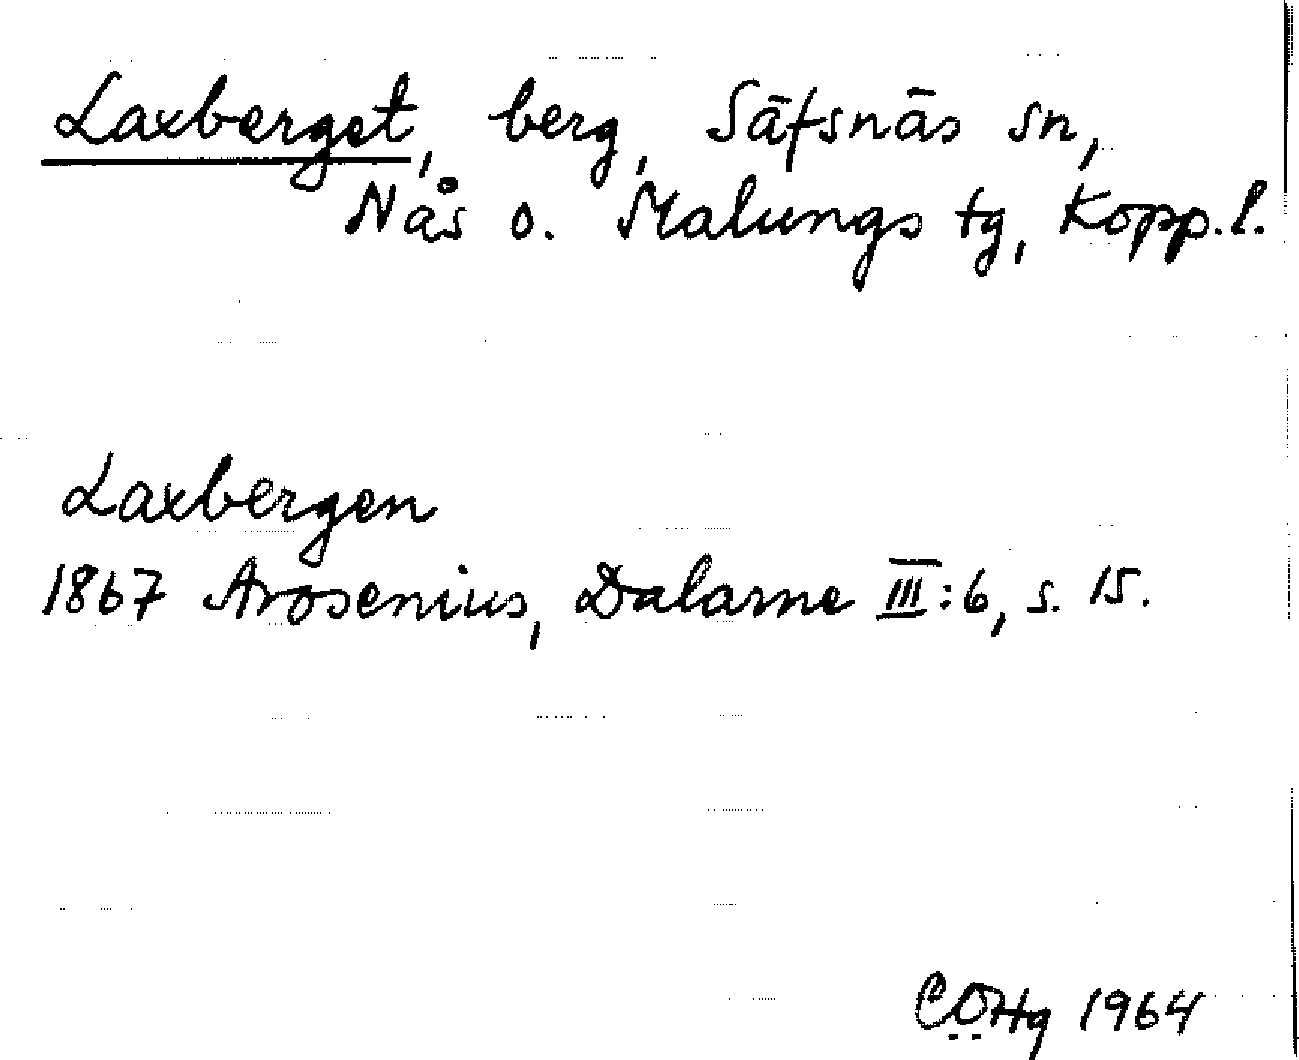 Laxberget, berg, Säfsnäs sn,
Nås o. Malungs tg, Kopp.l.
Laxbergen
1867 Arosenius, Dalarne III:6, s. 15.
CÖHg 1964